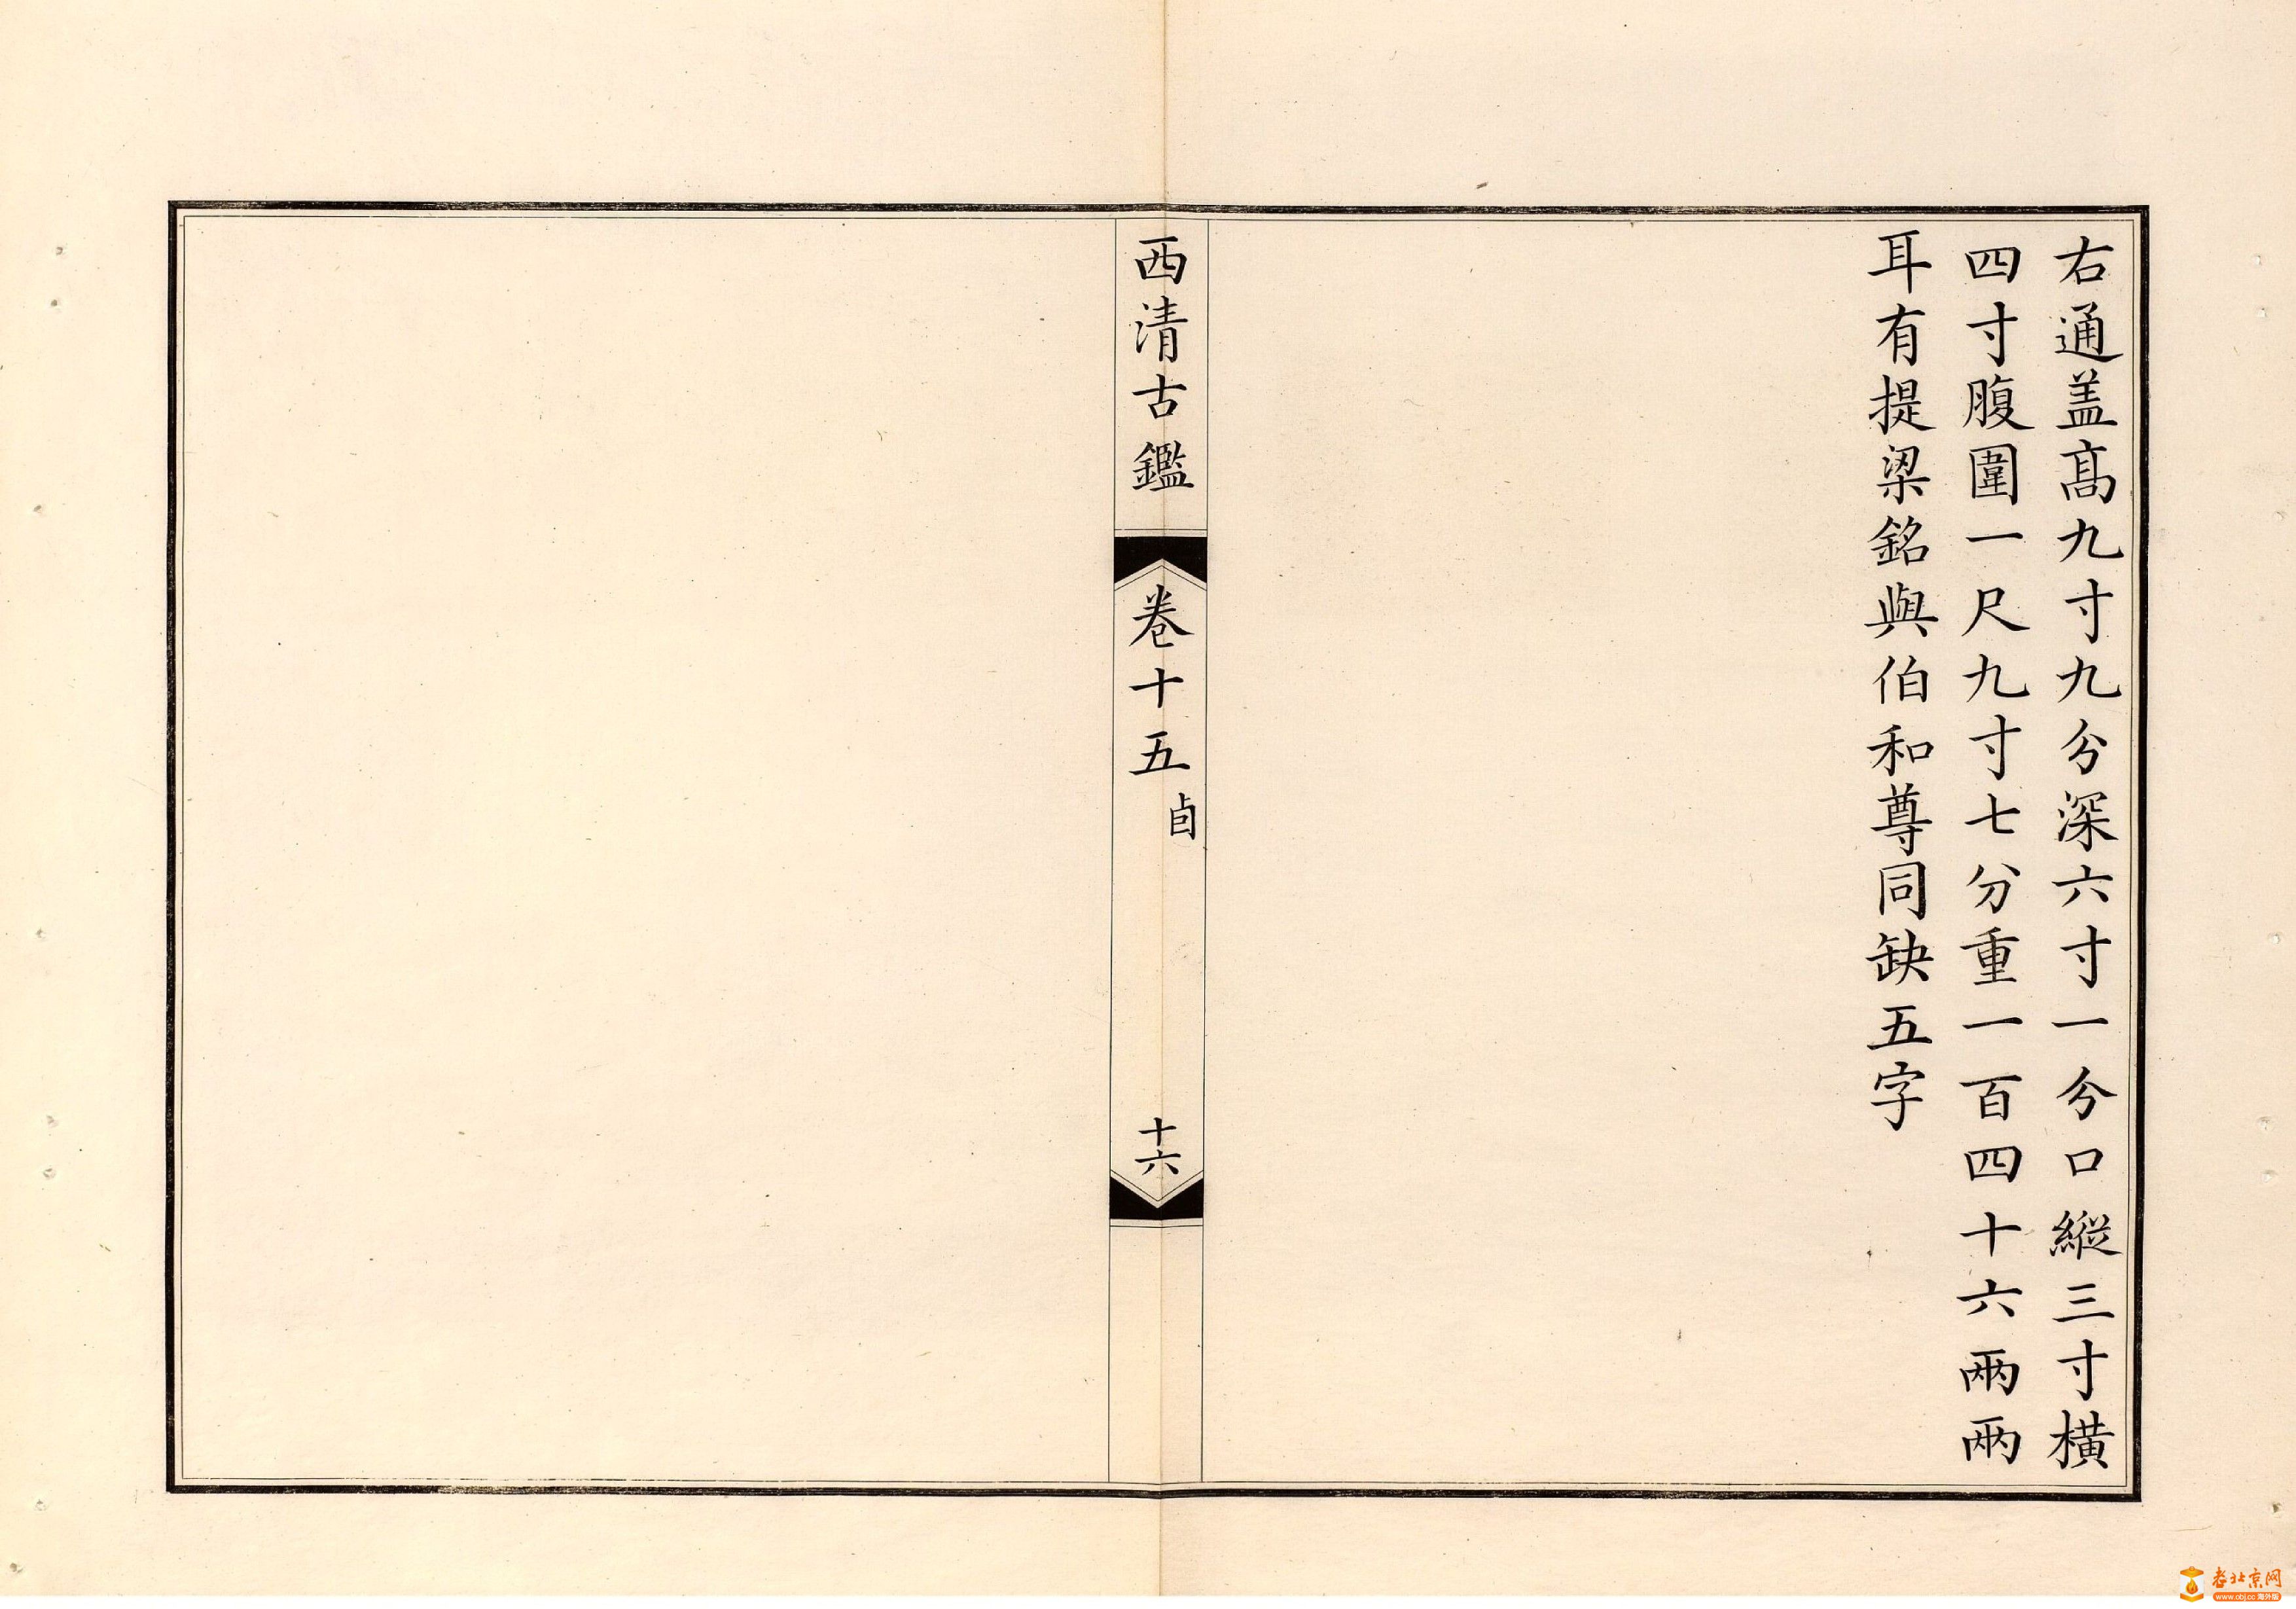 右通盖髙九寸九分深六寸一分口縱三寸橫
四寸腹圍一尺九寸七分重一百四十六兩兩
耳有提梁銘與伯和尊同缺五字
西清古鑑
卷十五 卣
十六
老北京网
www.obj.cc 海外版